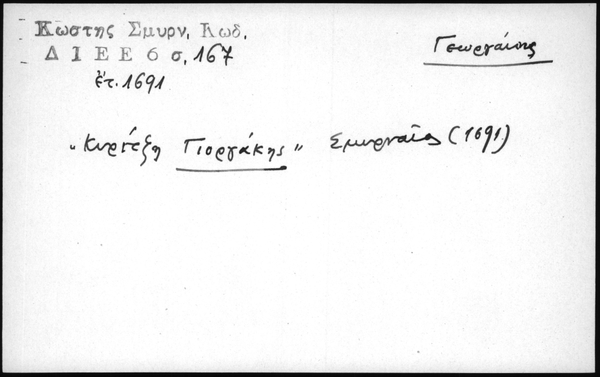 Κωστης Σμυρν, Κωδ. Γεωργάκης
Δ Ι Ε Ε 6 σ, 167
ἔτ. 1691
"Κιρτέξη Γιοργάκης" Σμυρναῖος (1691)